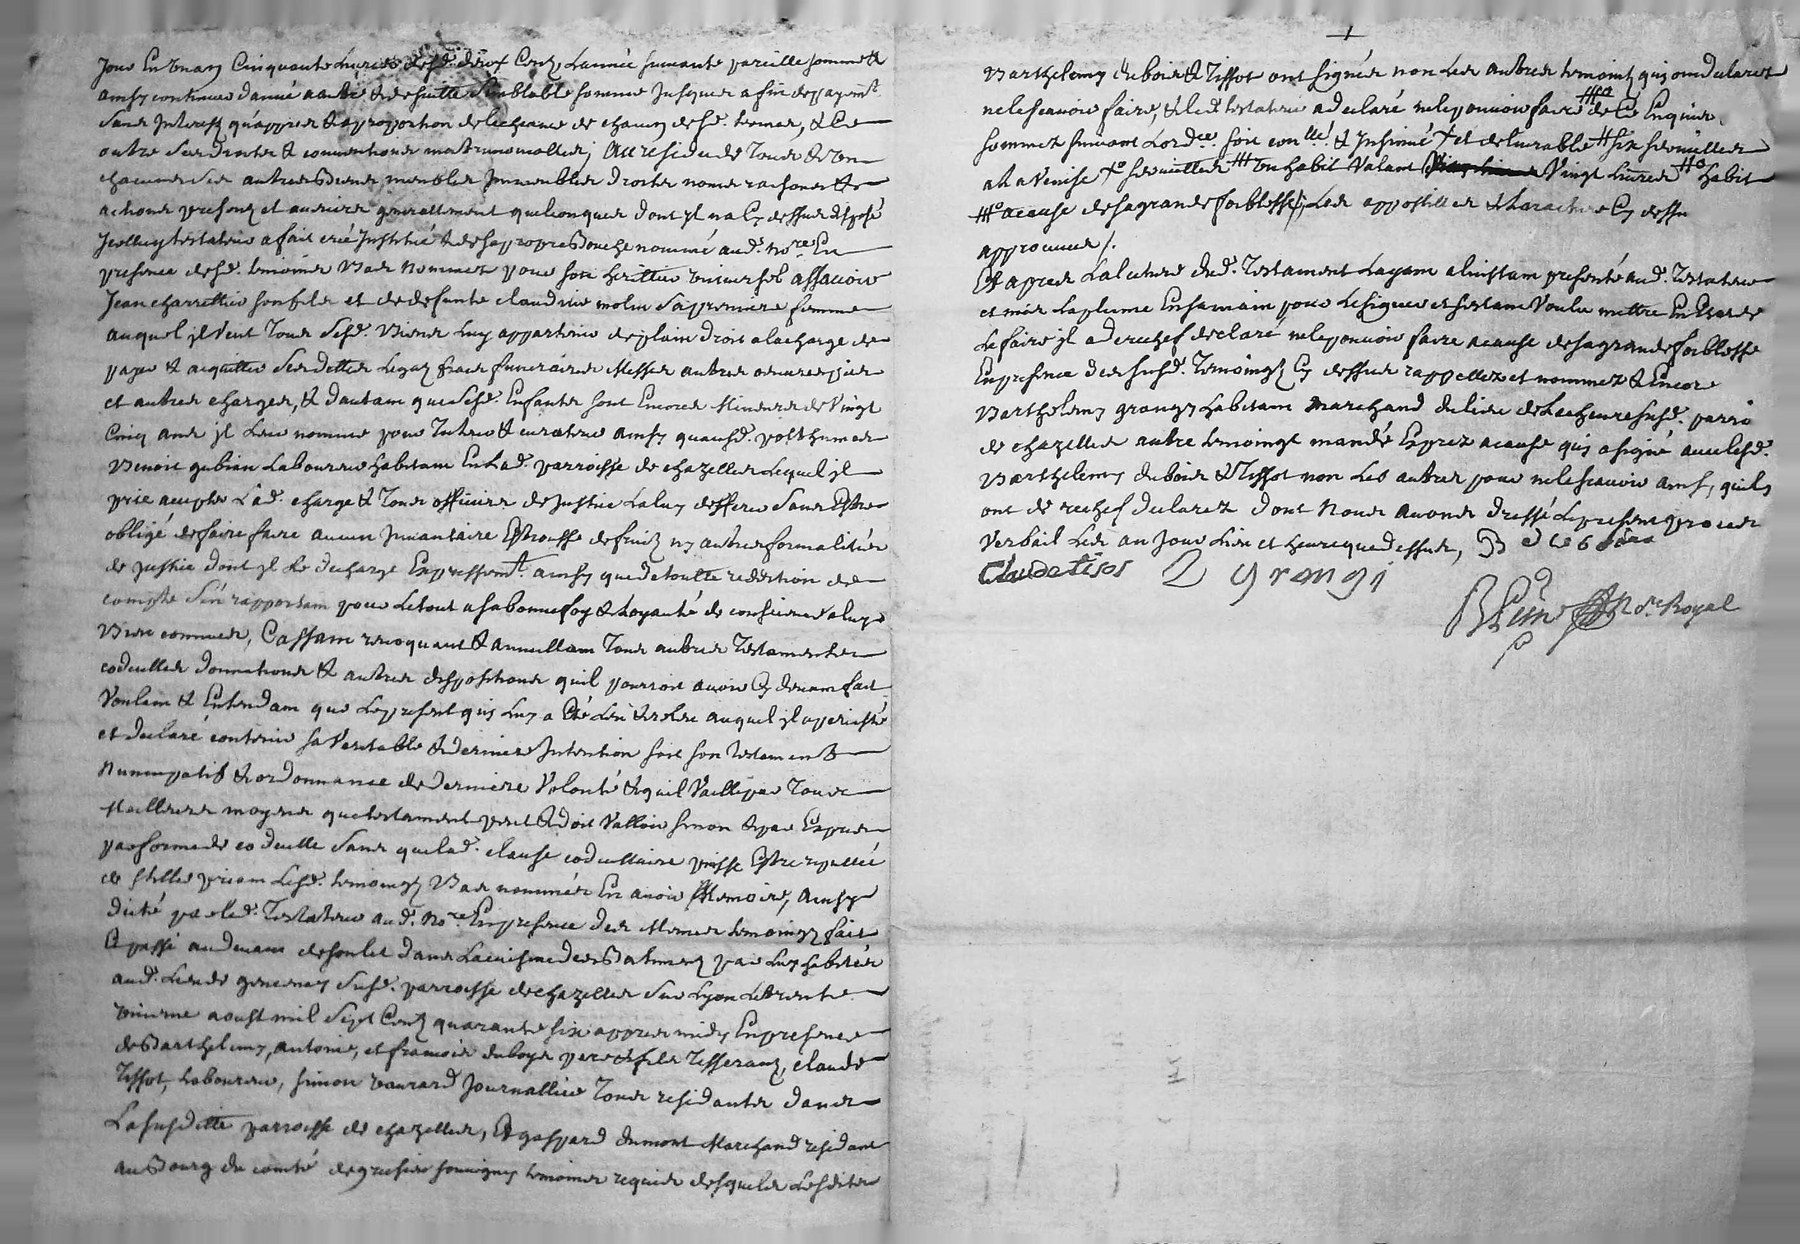 Jour En Un an Cinquante livres desd. deux Cent L'année suivante pareille somme &
ainsy continuer d'année a autre & de suitte semblable somme Jusques a fin de payem.t
sans Interest qu'apprès & a proportion de l'echeance de chacun desd. termes, & Ce
outre ses droits & conventions matrimonialles; Au residu de Tous & Un
chacuns ses autres Biens meubles Immeubles droits noms raisons &
actions presens et avenir generallement quelconques dont jl n'a Cy dessus disposé
Jcelluy testateur a fait créé Jnstitué & de sa propre Bouche nommé aud. no.re En
presence desd. temoins Bas nommez pour son heritier universel assavoir
Jean charretier son fils et de defunte claudine molin sa premiere femme
auquel jl veut Tous Sesd. Biens luy appartenir de plain droit a la charge de
payer & acquitter ses dettes Legaz fraix funeraires Messes autres oeuvres pies
et autres charges, & d'autant que Sesd. Enfants sont Encores Mineurs de Vingt
Cinq ans jl leur nomme pour Tuteur & curateur ainsy qu'ausd. posthumes
Benoit gubian Laboureur habitant En Lad. parroisse de chazelles Lequel jl
prie accepter Lad. charge & Tous officiers de Justice La luy defferer sans Estre
obligé de faire faire aucun Jnvantaire Estrousse de fruits ny autres formalités
de Justice dont jl Le decharge Expressem.t ainsy que de toutte reddition de
compte S'en rapportant pour le tout a sa bonne foy & Loyauté de conscience a luy
Bien connues, Cassant revoquant & annullant Tous autres Testaments
codicilles donnations & autres dispositions qu'il pourroit avoir Cy devant fait
Voulant & Entendant que Le present qui Luy a Eté Leu & releu auquel jl a persisté
et declaré contenir sa Veritable & derniere Jntention soit son testament
Nuncupatif & ordonnance de derniere Volonté & qu'il Vaille par Tous
Meilleurs moyens que testament peut & doit Valloir sinon & par Exprès
par forme de codicille sans que lad. clause codicillaire puisse Estre reputtée
de stille priant Lesd. temoings Bas nommés En avoir Memoire, Ainsy
dicté par led. Testateur aud. No.re En presence des Mêmes temoings fait
& passé au devant de son lit dans La cuisine des Batiments par Luy habités
aud. Lieu de Susd. parroisse de chazelles sur Lyon Le trente
unieme aoust mil Sept Cent quarante six appres midy En presence
de Barthelemy, antoine, et francois duboys pere & fils Tisserans, claude
Tissot, Laboureur, simon Journallier Tous residants dans
La susditte parroisse de chazelles, & gaspard dumont Marchand residant
au Bourg du comté de temoins requis desquels Lesdits
Barthelemy dubois & Tissot ont signés non Les autres temoins qui ont declarez
ne le scavoir faire, & led. testateur a declaré ne le pouvoir faire #a de Ce Enquis &
sommez suivant Lord.ce soit con.llé & Insinué + et delivrable # six serviettes
a la Venise +o serviettes ## un habit Valant Vingt livres #o habit
##o a cause de sa grande foiblesse; Les appostilles & Cy dessus
approuvés /.
Et apres La lecture dud. Testament Layant a linstant presenté aud. Testateur
et mis La plume En sa main pour Le signer et s'estant Voulu mettre En Etat de
Le faire jl a derechef declaré ne le pouvoir faire a cause de sa grande foiblesse
En presence des susd. Temoings Cy dessus rappellez et nommez & Encore
Barthelemy grangy habitant marchand du lieu de susd. parr.o
de chazelles autre temoingt mandé Exprez a cause qui a signé avec lesd.
Barthelemy dubois & Tissot non Les autres pour ne le scavoir ainsy qu'ils
ont de rechef declarez dont Nous avons dressé Le present procès
Verbail Les an Jour Lieu et heure que dessus,
Claude tisot grangi
No.re Royal